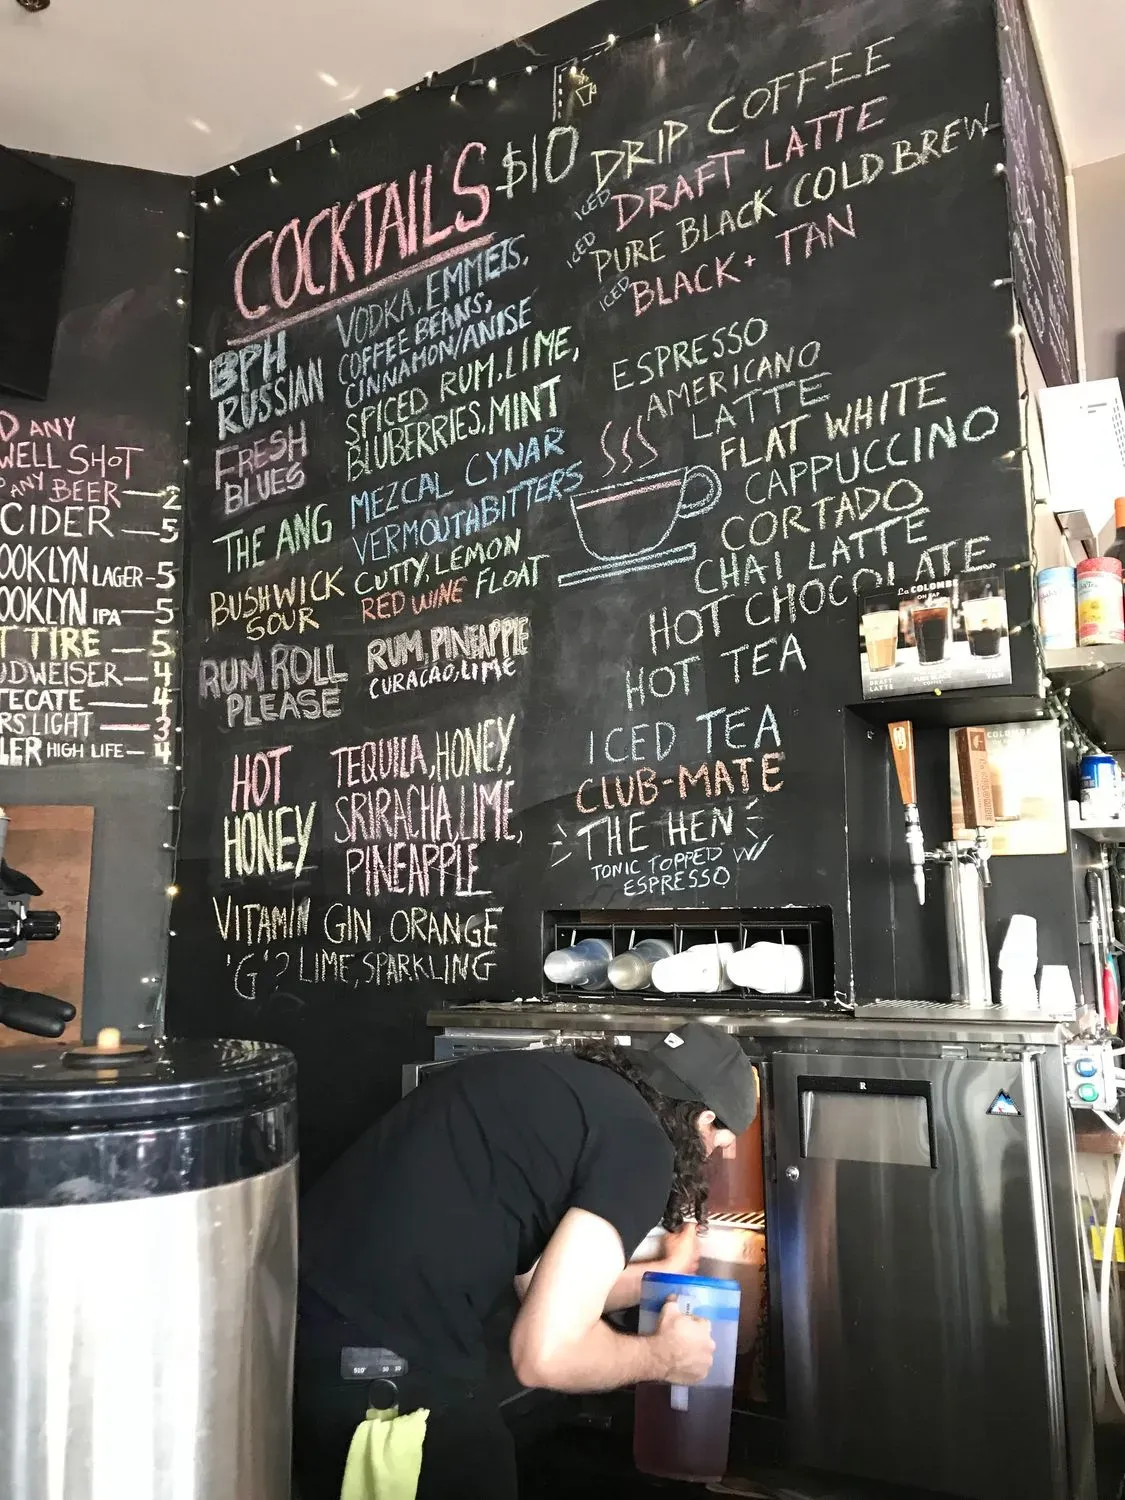 D ANY
WELL SHOT
ANY BEER — 2
CIDER — 5
OOKLYN LAGER - 5
OOKLYN IPA — 5
T TIRE — 5
UDWEISER — 4
TECATE — 4
RS LIGHT — 3
LER HIGH LIFE — 4
COCKTAILS $10
BPH RUSSIAN
VODKA, EMMETS,
COFFEE BEANS,
CINNAMON/ANISE
FRESH BLUES
SPICED RUM, LIME,
BLUBERRIES, MINT
THE ANG
MEZCAL CYNAR
VERMOUTA BITTERS
BUSHWICK SOUR
CUTTY, LEMON
RED WINE FLOAT
RUM ROLL PLEASE
RUM, PINEAPPLE
CURACAO, LIME
HOT HONEY
TEQUILA, HONEY,
SRIRACHA, LIME,
PINEAPPLE
VITAMIN 'G'?
GIN, ORANGE
LIME, SPARKLING
DRIP COFFEE
ICED DRAFT LATTE
ICED PURE BLACK COLD BREW
ICED BLACK + TAN
ESPRESSO
AMERICANO
LATTE
FLAT WHITE
CAPPUCCINO
CORTADO
CHAI LATTE
HOT CHOCOLATE
HOT TEA
ICED TEA
CLUB-MATE
THE HEN
TONIC TOPPED W/
ESPRESSO
La COLOMBE
ON TAP
DRAFT
LATTE
PURE BLACK
COLOMBE